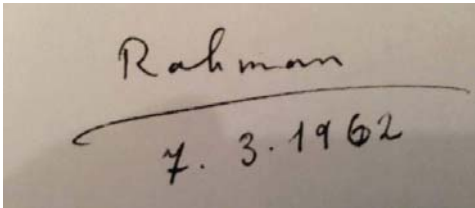 Rahman
7.3.1962